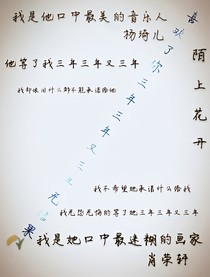 我是他口中最美的音乐人
杨琦儿
他等了我三年三年又三年
我却依旧什么都不能承诺给他
陌上花开
喜欢了你三年三年又三年无结果
我不希望她承诺什么给我
我无怨无悔的等了她三年三年又三年
我是她口中最迷糊的画家
肖荣轩